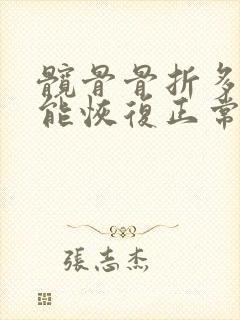 髖骨骨折多
能恢復正常
張志杰